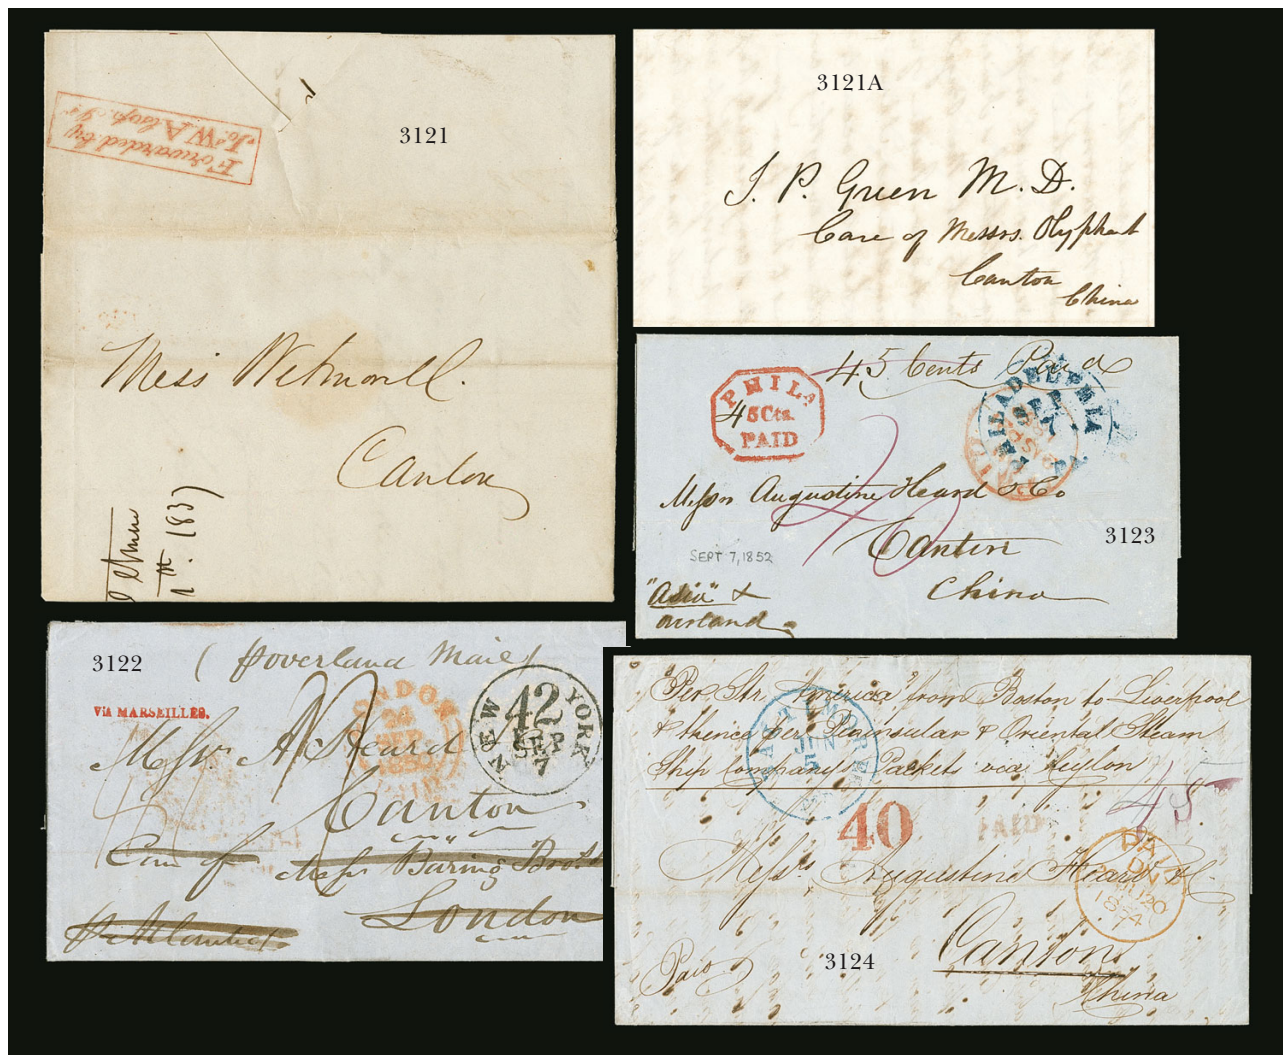 3121
Forwarded by
Jos. W. Alsop Jr
Miss Wetmore
Canton
1837
3121A
J. P. Green M. D.
Care of Messrs. Olyphant
Canton
China
45 Cents Paid
PHILA
45 Cts
PAID
PHILADELPHIA
SEP
7
PA.
Messrs Augustine Heard & Co
Canton
China
3123
SEPT 7, 1852
"Asia" &
overland
3122
(p overland Mail)
VIA MARSEILLES.
LONDON
24
SEP
1850
NEW YORK
42
SEP
7
Messrs A. Heard
Canton
Care of Messrs Baring Broth
London
p Atlantic
Per Str. "America" from Boston to Liverpool
& thence per Peninsular & Oriental Steam
Ship Company's Packets via Ceylon
BALTIMORE
JUN
5
40
PAID
45
PAID
20
1854
Messrs Augustine Heard & Co.
Canton
China
Paid
3124